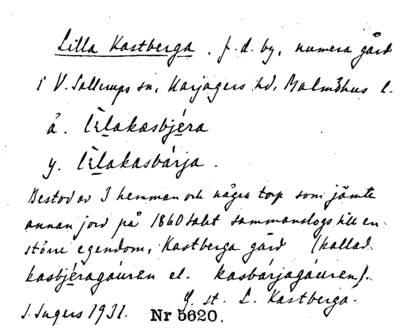 Lilla Kastberga. f. d. by, numera gård
i V. Sallerups sn, Harjagers hd, Malmöhus l.
ä. lìlakasbjéra
y. lìlakasbárja.
Bestod av 3 hemman och några torp som jämte
annan jord på 1860 talet sammanslogs till en
större egendom, Kastberga gård (kallad
kasbjéragáuren el. kasbárjagáuren).
S. Ingers 1931. Nr 5620. Y. st. L. Kastberga.